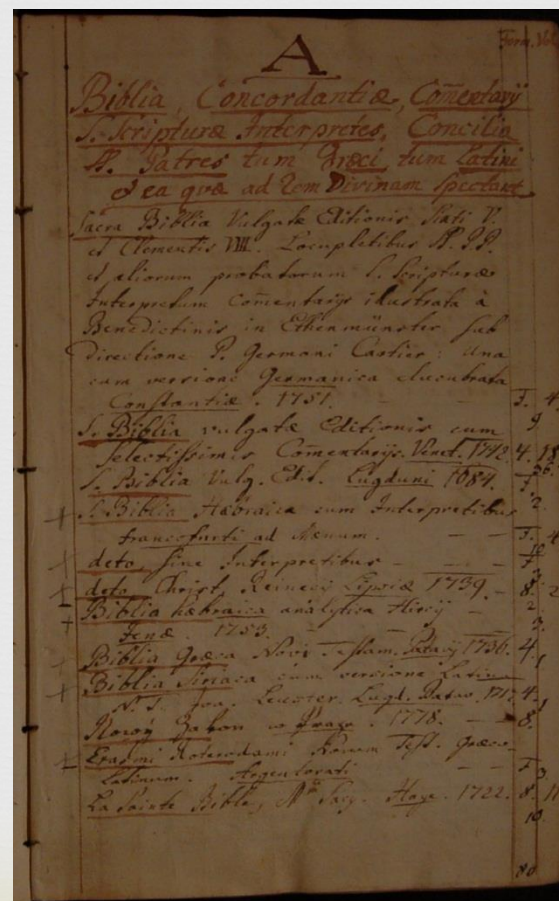 Form. Vol
A
Biblia, Concordantiæ, Com̄entarij
S. Scripturæ Interpretes, Concilia
SS. Patres tum Græci tum Latini
& ea quæ ad Rem Divinam spectant
Sacra Biblia Vulgatæ Editionis Sixti V.
et Clementis VIII. Locupletibus SS. PP.
et aliorum probatorum S. Scripturæ
Interpretum com̄entarijs illustrata à
Benedictinis in Ethenmünster sub
directione P. Germani Cartier: una
cum versione Germanica elucubrata
Constantiæ. 1751. — — F. 4
S. Biblia vulgatæ Editionis cum 9
selectissimis Com̄entarijs. Venet. 1742. 4. 28
S. Biblia Vulg. Edit. Lugduni 1684. F.
+ S. Biblia Hebraica cum Interpretibus 2.
francofurti ad Mænum. — — F. 4
+ deto, sine Interpretibus — F
+ deto Christ. Reinecij Lipsiæ 1739. — 8. 2
+ Biblia hæbraica analytica Hircij — 2
Jenæ. 1753. — — 3.
+ Biblia Græca Novi Testam. Patavij 1736. 4.
+ Biblia Siriaca cum versione Latina
N. T. Joa. Leuster. Lugd. Batav. 1717. 4.
Nowý Zakon w Praze. 1778. — — 8.
+ Erasmi Roterodami Novum Test. Græco-
Latinum. Argentorati — — F
La Sainte Bible, Haye. 1722. 8. 11
10.
80